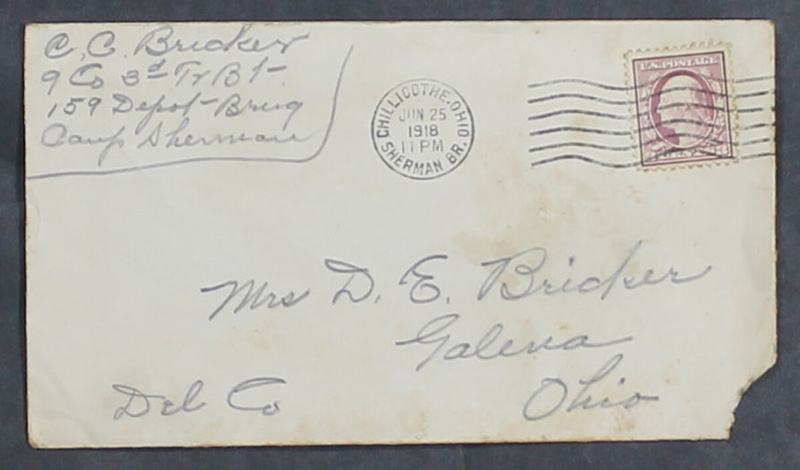 C. C. Bricker
9 Co 3d Tr Bt-
159 Depot-Brug
Camp Sherman
CHILLICOTHE·OHIO
JUN 25
1918
11 PM
SHERMAN BR.
U.S. POSTAGE
Mrs D. E. Bricker
Galena
Del Co
Ohio